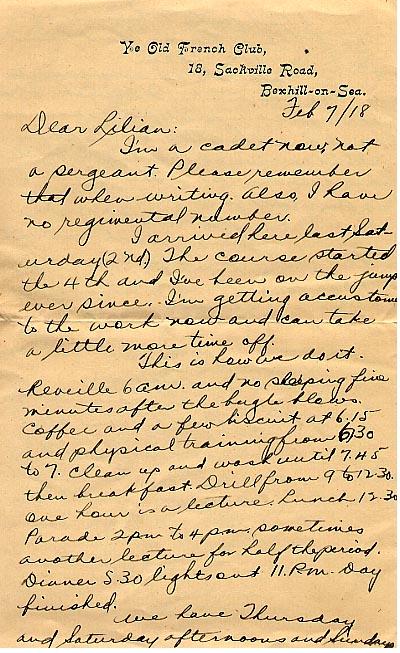 Ye Old French Club,
18, Sackville Road,
Bexhill-on-Sea.
Feb 7/18
Dear Lilian:
I'm a cadet now, not
a sergeant. Please remember
that when writing. Also, I have
no regimental number.
I arrived here last Sat-
urday (2nd) The course started
the 4th and I've been on the jump
ever since. I'm getting accustome
to the work now and can take
a little more time off.
This is how we do it.
Reveille 6 a.m. and no sleeping five
minutes after the bugle blows.
Coffee and a few biscuit at 6.15
and physical training from 6.30
to 7. Clean up and wash until 7.45
then breakfast. Drill from 9 to 12.30.
One hour is a lecture. Lunch 12.30
Parade 2 pm to 4 pm, sometimes
another lecture for half the period.
Dinner 5.30 lights out 11. P.M. Day
finished.
We have Thursday
and Saturday afternoons and Sundays